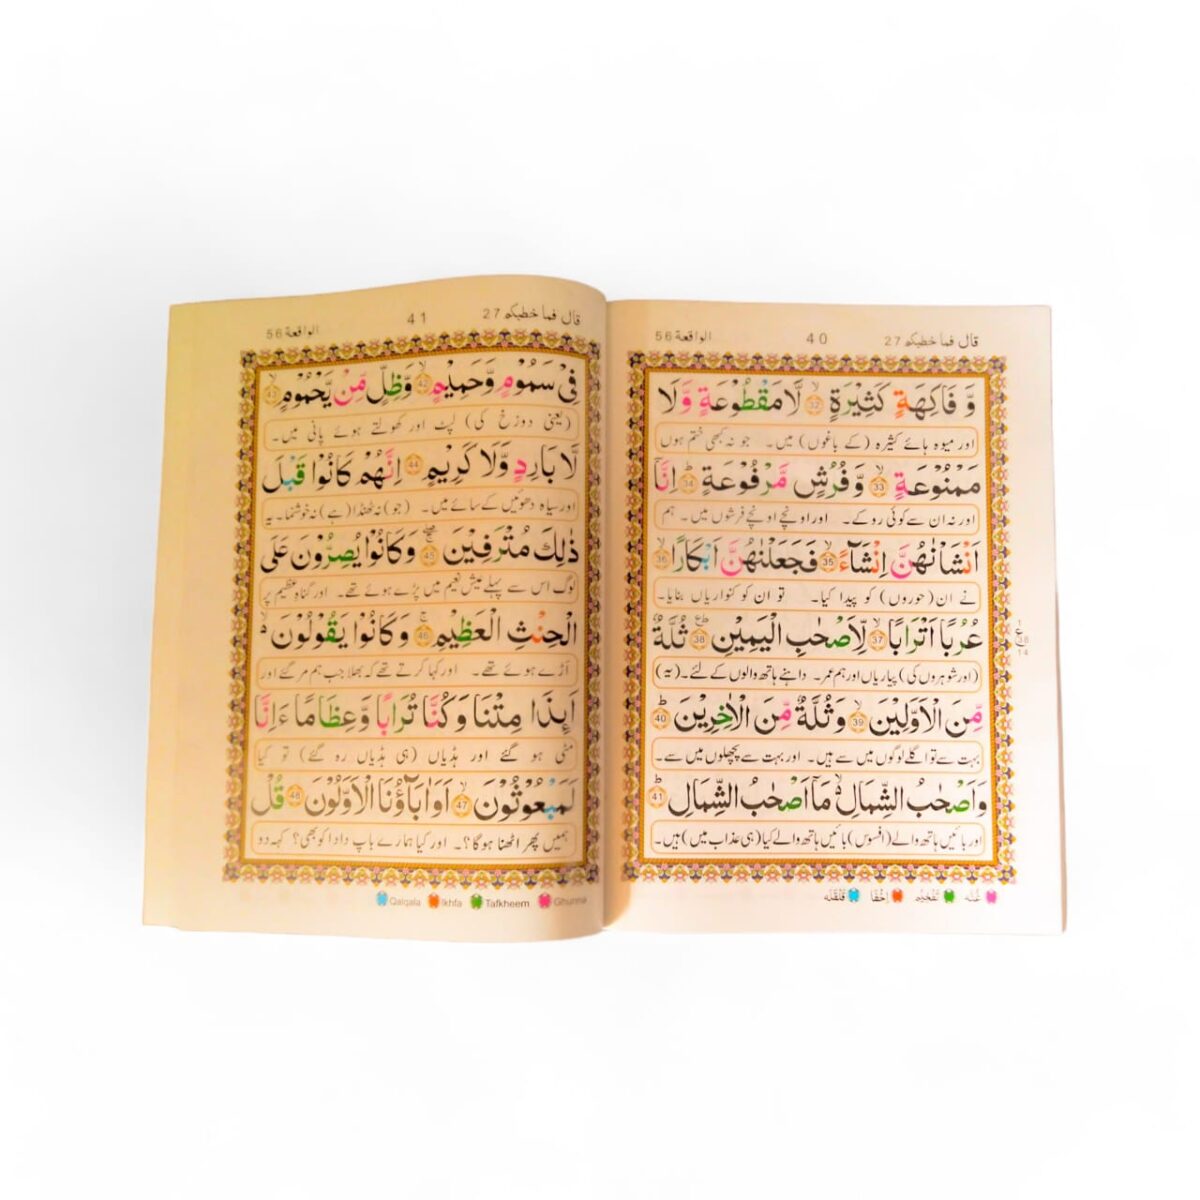 قال فما خطبكم 27
40
الواقعة 56
وَّ فَاكِهَةٍ كَثِيْرَةٍ ۙ 32 لَّا مَقْطُوْعَةٍ وَّ لَا
اور میوہ ہائے کثیرہ (کے باغوں) میں۔ جو نہ کبھی ختم ہوں
مَمْنُوْعَةٍ ۙ 33 وَّ فُرُشٍ مَّرْفُوْعَةٍ ؕ 34 اِنَّاۤ
اور نہ ان سے کوئی روکے۔ اور اونچے اونچے فرشوں میں۔ ہم
اَنْشَاْنٰهُنَّ اِنْشَآءً ۙ 35 فَجَعَلْنٰهُنَّ اَبْكَارًا ۙ 36
نے ان (حوروں) کو پیدا کیا۔ تو ان کو کنواریاں بنایا۔
عُرُبًا اَتْرَابًا ۙ 37 لِّاَصْحٰبِ الْيَمِيْنِ ؕ 38 ثُلَّةٌ
(اور شوہروں کی) پیاریاں اور ہم عمر۔ داہنے ہاتھ والوں کے لئے۔ (یہ)
مِّنَ الْاَوَّلِيْنَ ۙ 39 وَ ثُلَّةٌ مِّنَ الْاٰخِرِيْنَ ؕ 40
بہت سے تو اگلے لوگوں میں سے ہیں۔ اور بہت سے پچھلوں میں سے۔
وَ اَصْحٰبُ الشِّمَالِ ۙ مَاۤ اَصْحٰبُ الشِّمَالِ ؕ 41
اور بائیں ہاتھ والے (افسوس) بائیں ہاتھ والے کیا (ہی عذاب میں) ہیں۔
غُنّه تَفْخِيْم اِخْفَا قَلْقَلَه
قال فما خطبكم 27
41
الواقعة 56
فِيْ سَمُوْمٍ وَّ حَمِيْمٍ ۙ 42 وَّ ظِلٍّ مِّنْ يَّحْمُوْمٍ ۙ 43
(یعنی دوزخ کی) لپٹ اور کھولتے ہوئے پانی میں۔
لَّا بَارِدٍ وَّ لَا كَرِيْمٍ 44 اِنَّهُمْ كَانُوْا قَبْلَ
اور سیاہ دھوئیں کے سائے میں۔ (جو) نہ ٹھنڈا (ہے) نہ خوشنما۔ یہ
ذٰلِكَ مُتْرَفِيْنَ 45 وَ كَانُوْا يُصِرُّوْنَ عَلَى
لوگ اس سے پہلے عیش نعیم میں پڑے ہوئے تھے۔ اور گناہ عظیم پر
الْحِنْثِ الْعَظِيْمِ ۚ 46 وَ كَانُوْا يَقُوْلُوْنَ ۙ
اڑے ہوئے تھے۔ اور کہا کرتے تھے کہ بھلا جب ہم مر گئے اور
اَىِٕذَا مِتْنَا وَ كُنَّا تُرَابًا وَّ عِظَامًا ءَاِنَّا
مٹی ہو گئے اور ہڈیاں (ہی ہڈیاں رہ گئے) تو کیا
لَمَبْعُوْثُوْنَ ۙ 47 اَوَ اٰبَآؤُنَا الْاَوَّلُوْنَ 48 قُلْ
ہمیں پھر اٹھنا ہوگا؟۔ اور کیا ہمارے باپ دادا کو بھی؟ کہہ دو
Qalqala Ikhfa Tafkheem Ghunna